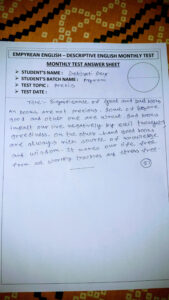 EMPYREAN ENGLISH – DESCRIPTIVE ENGLISH MONTHLY TEST
MONTHLY TEST ANSWER SHEET
➤ STUDENT'S NAME :
➤ STUDENT'S BATCH NAME :
➤ TEST TOPIC : Precis
➤ TEST DATE :
Title:- Significance of good and bad books
All books are not precious. Some of are
good and other one are worst. Bad books
impact our live negatively by evil thoughts
greediness. On the other hand good books
are always rich source of knowledge
and wisdom. It makes our life free
from all worldly troubles and stress free.